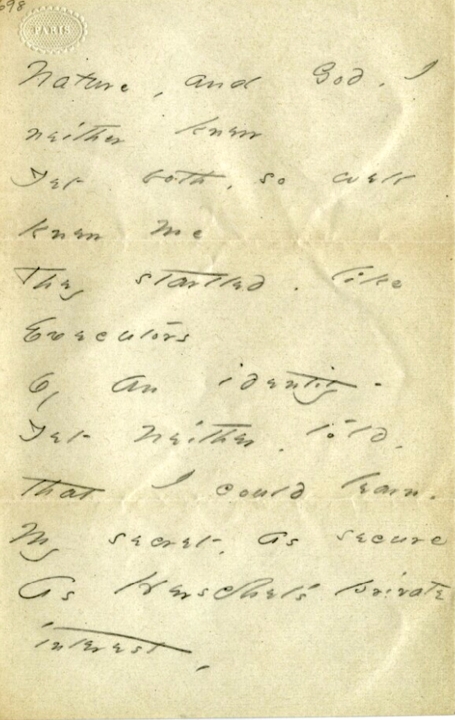 698
PARIS
Nature, and God. I
neither knew
Yet both, so well
knew me
They startled. like
Executors
Of An identity -
Yet Neither. told.
that I could learn.
My secret. as secure
As Herschel's private
interest,